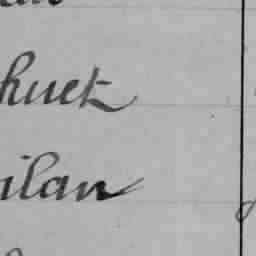 huet
ilan